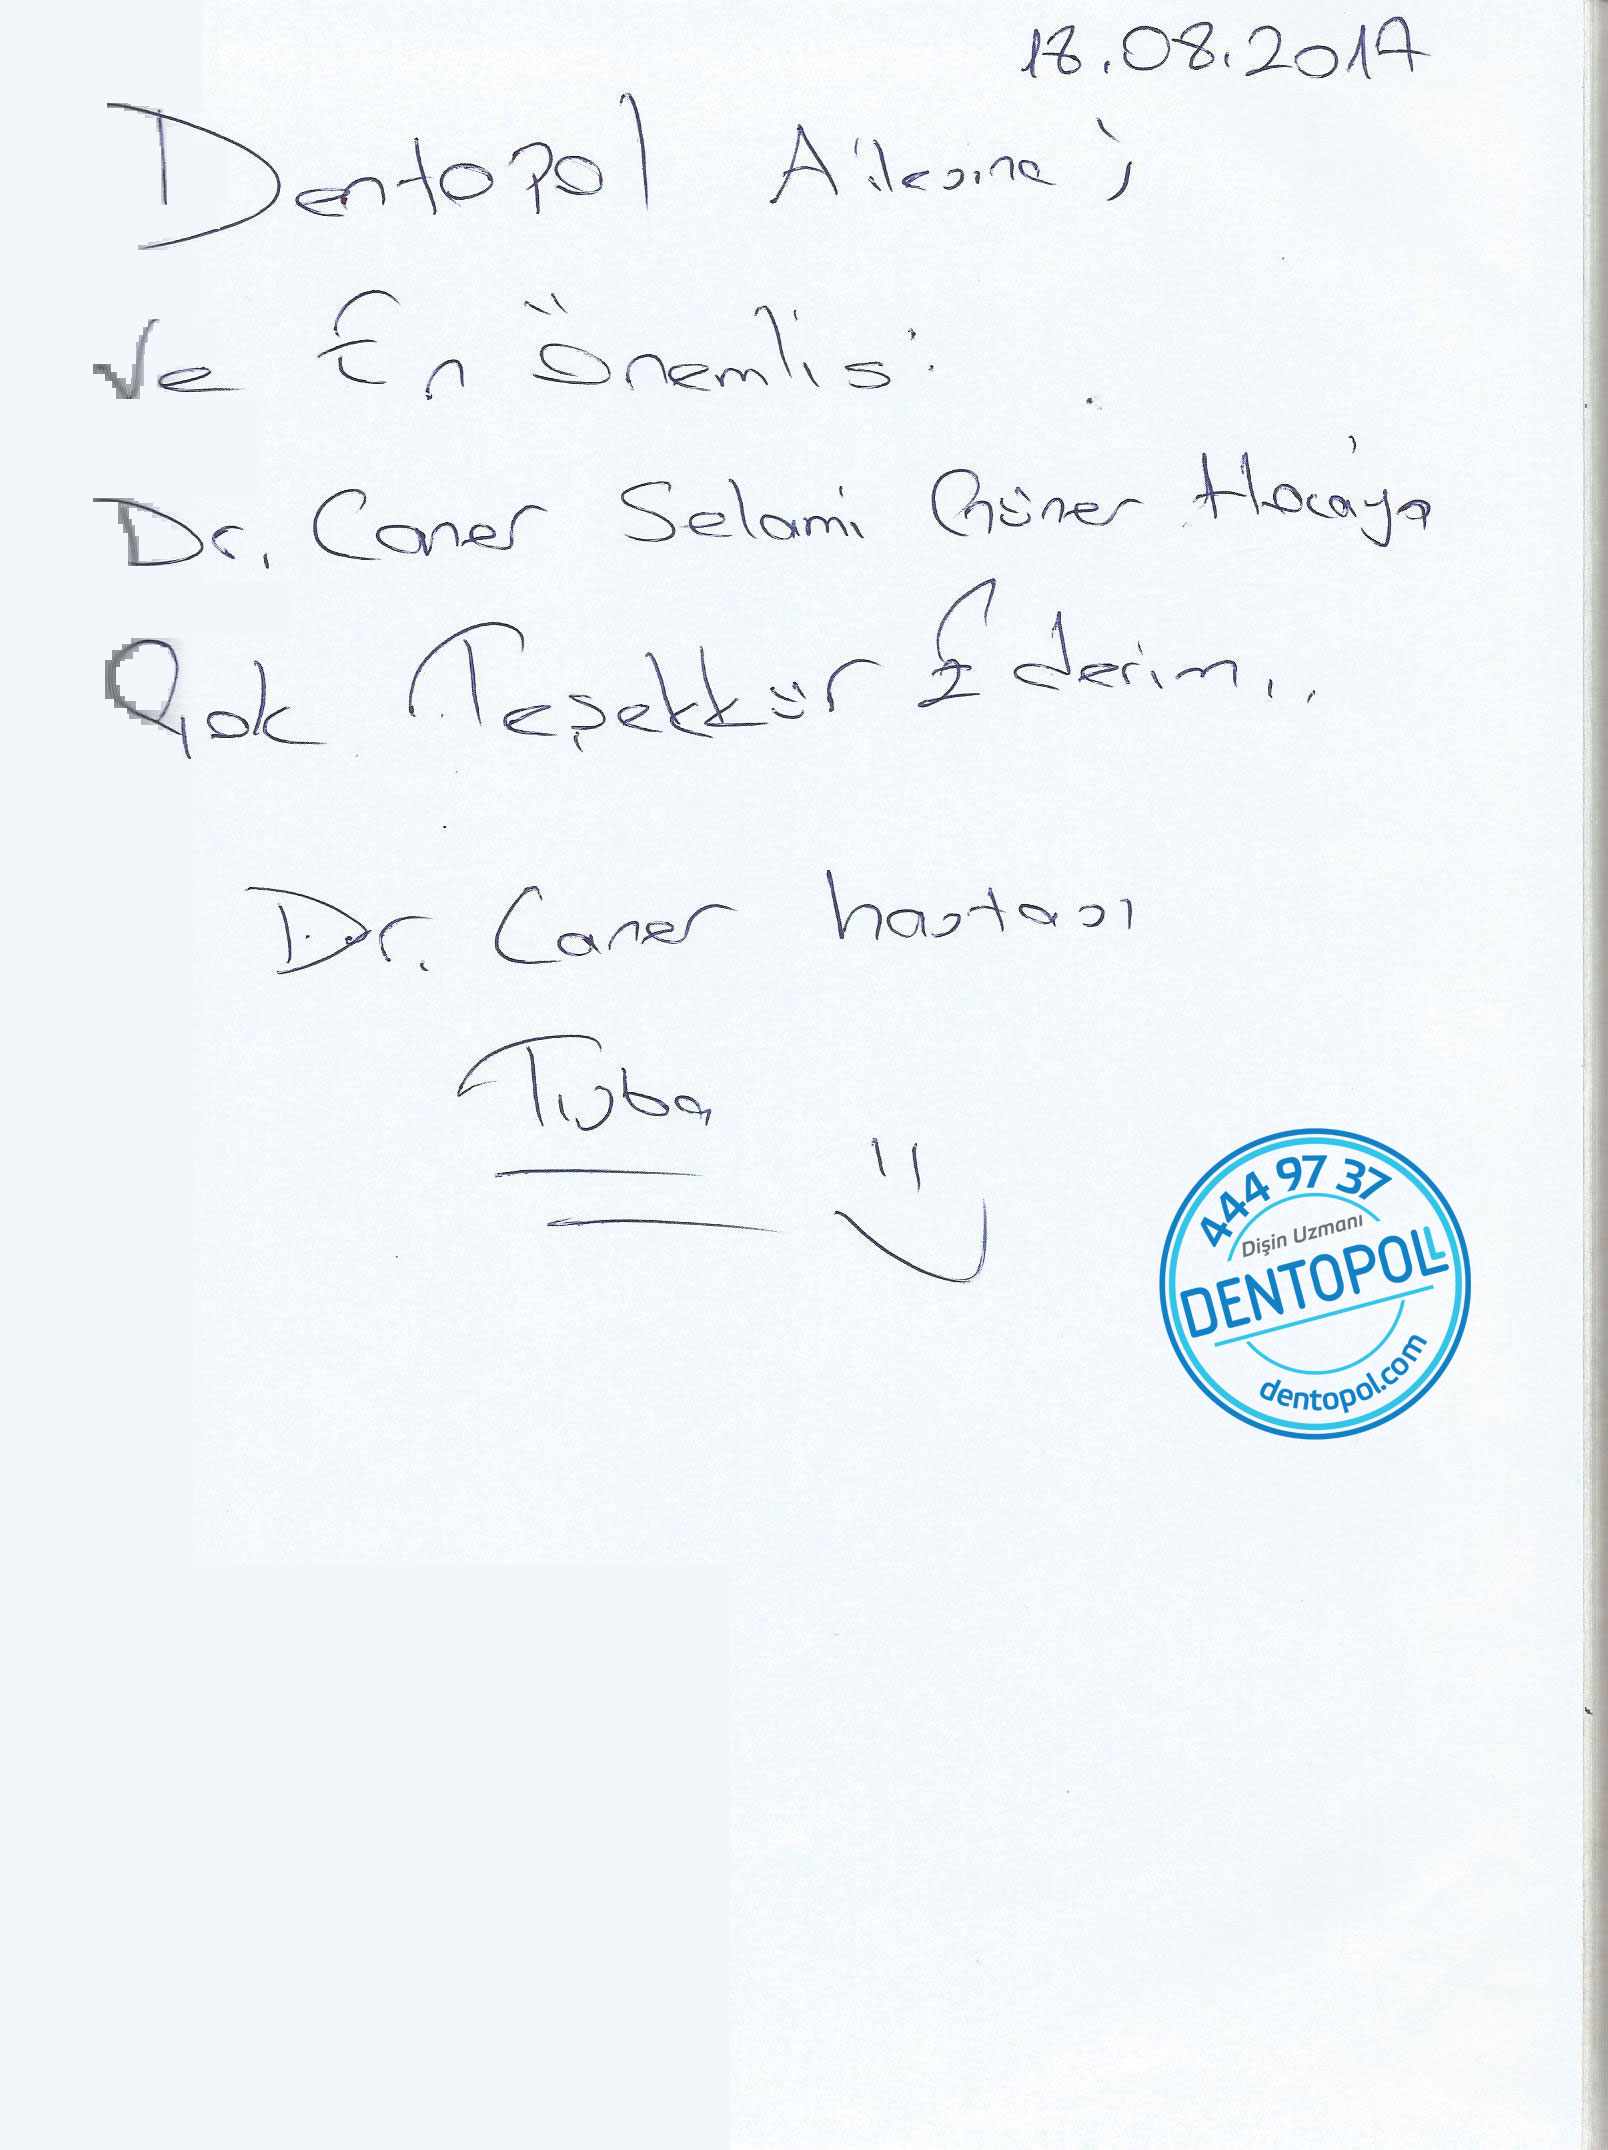 18.08.2017
Dentopol Ailesine;
Ve En Önemlisi
Dr. Caner Selami Güner Hoca'ya
Çok Teşekkür Ederim..
Dr. Caner hastası
Tuba
444 97 37
Dişin Uzmanı
DENTOPOLL
dentopol.com